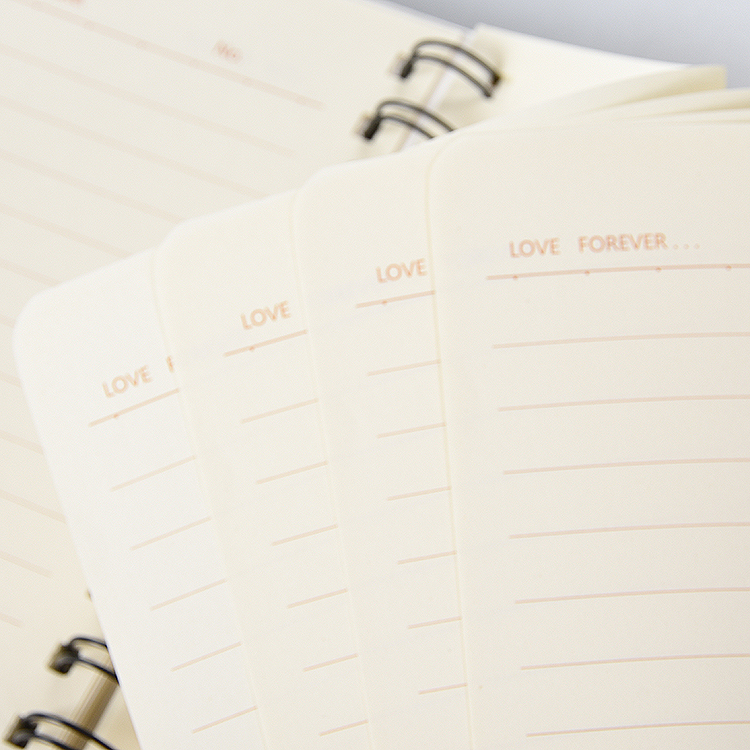 No
LOVE FOREVER...
LOVE
LOVE
LOVE F